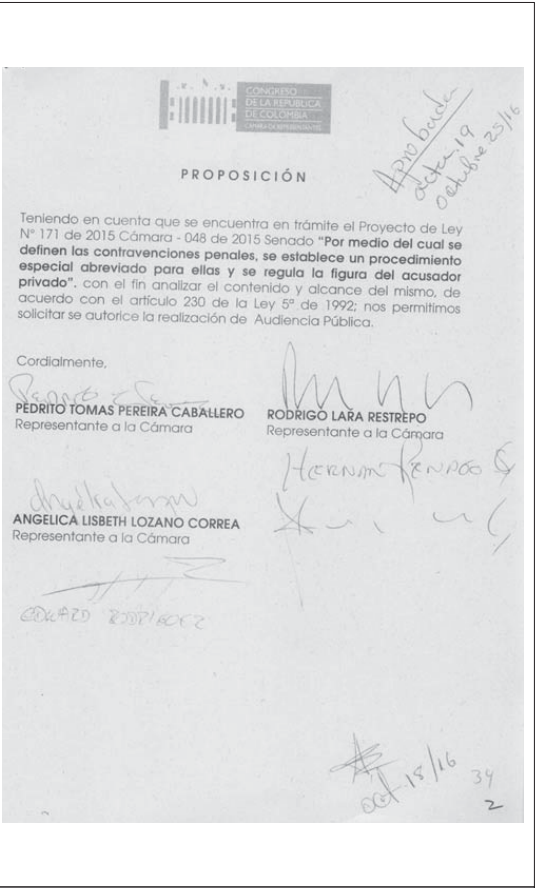 CONGRESO
DE LA REPÚBLICA
DE COLOMBIA
CÁMARA DE REPRESENTANTES
Aprobada
acta. 19
octubre. 25/16
PROPOSICIÓN
Teniendo en cuenta que se encuentra en trámite el Proyecto de Ley
N° 171 de 2015 Cámara - 048 de 2015 Senado "Por medio del cual se
definen las contravenciones penales, se establece un procedimiento
especial abreviado para ellas y se regula la figura del acusador
privado". con el fin analizar el contenido y alcance del mismo, de
acuerdo con el artículo 230 de la Ley 5ª de 1992; nos permitimos
solicitar se autorice la realización de Audiencia Pública.
Cordialmente,
PEDRITO TOMAS PEREIRA CABALLERO
Representante a la Cámara
RODRIGO LARA RESTREPO
Representante a la Cámara
HERNAN
ANGELICA LISBETH LOZANO CORREA
Representante a la Cámara
EDWARD RODRIGUEZ
oct-18/16
34
2